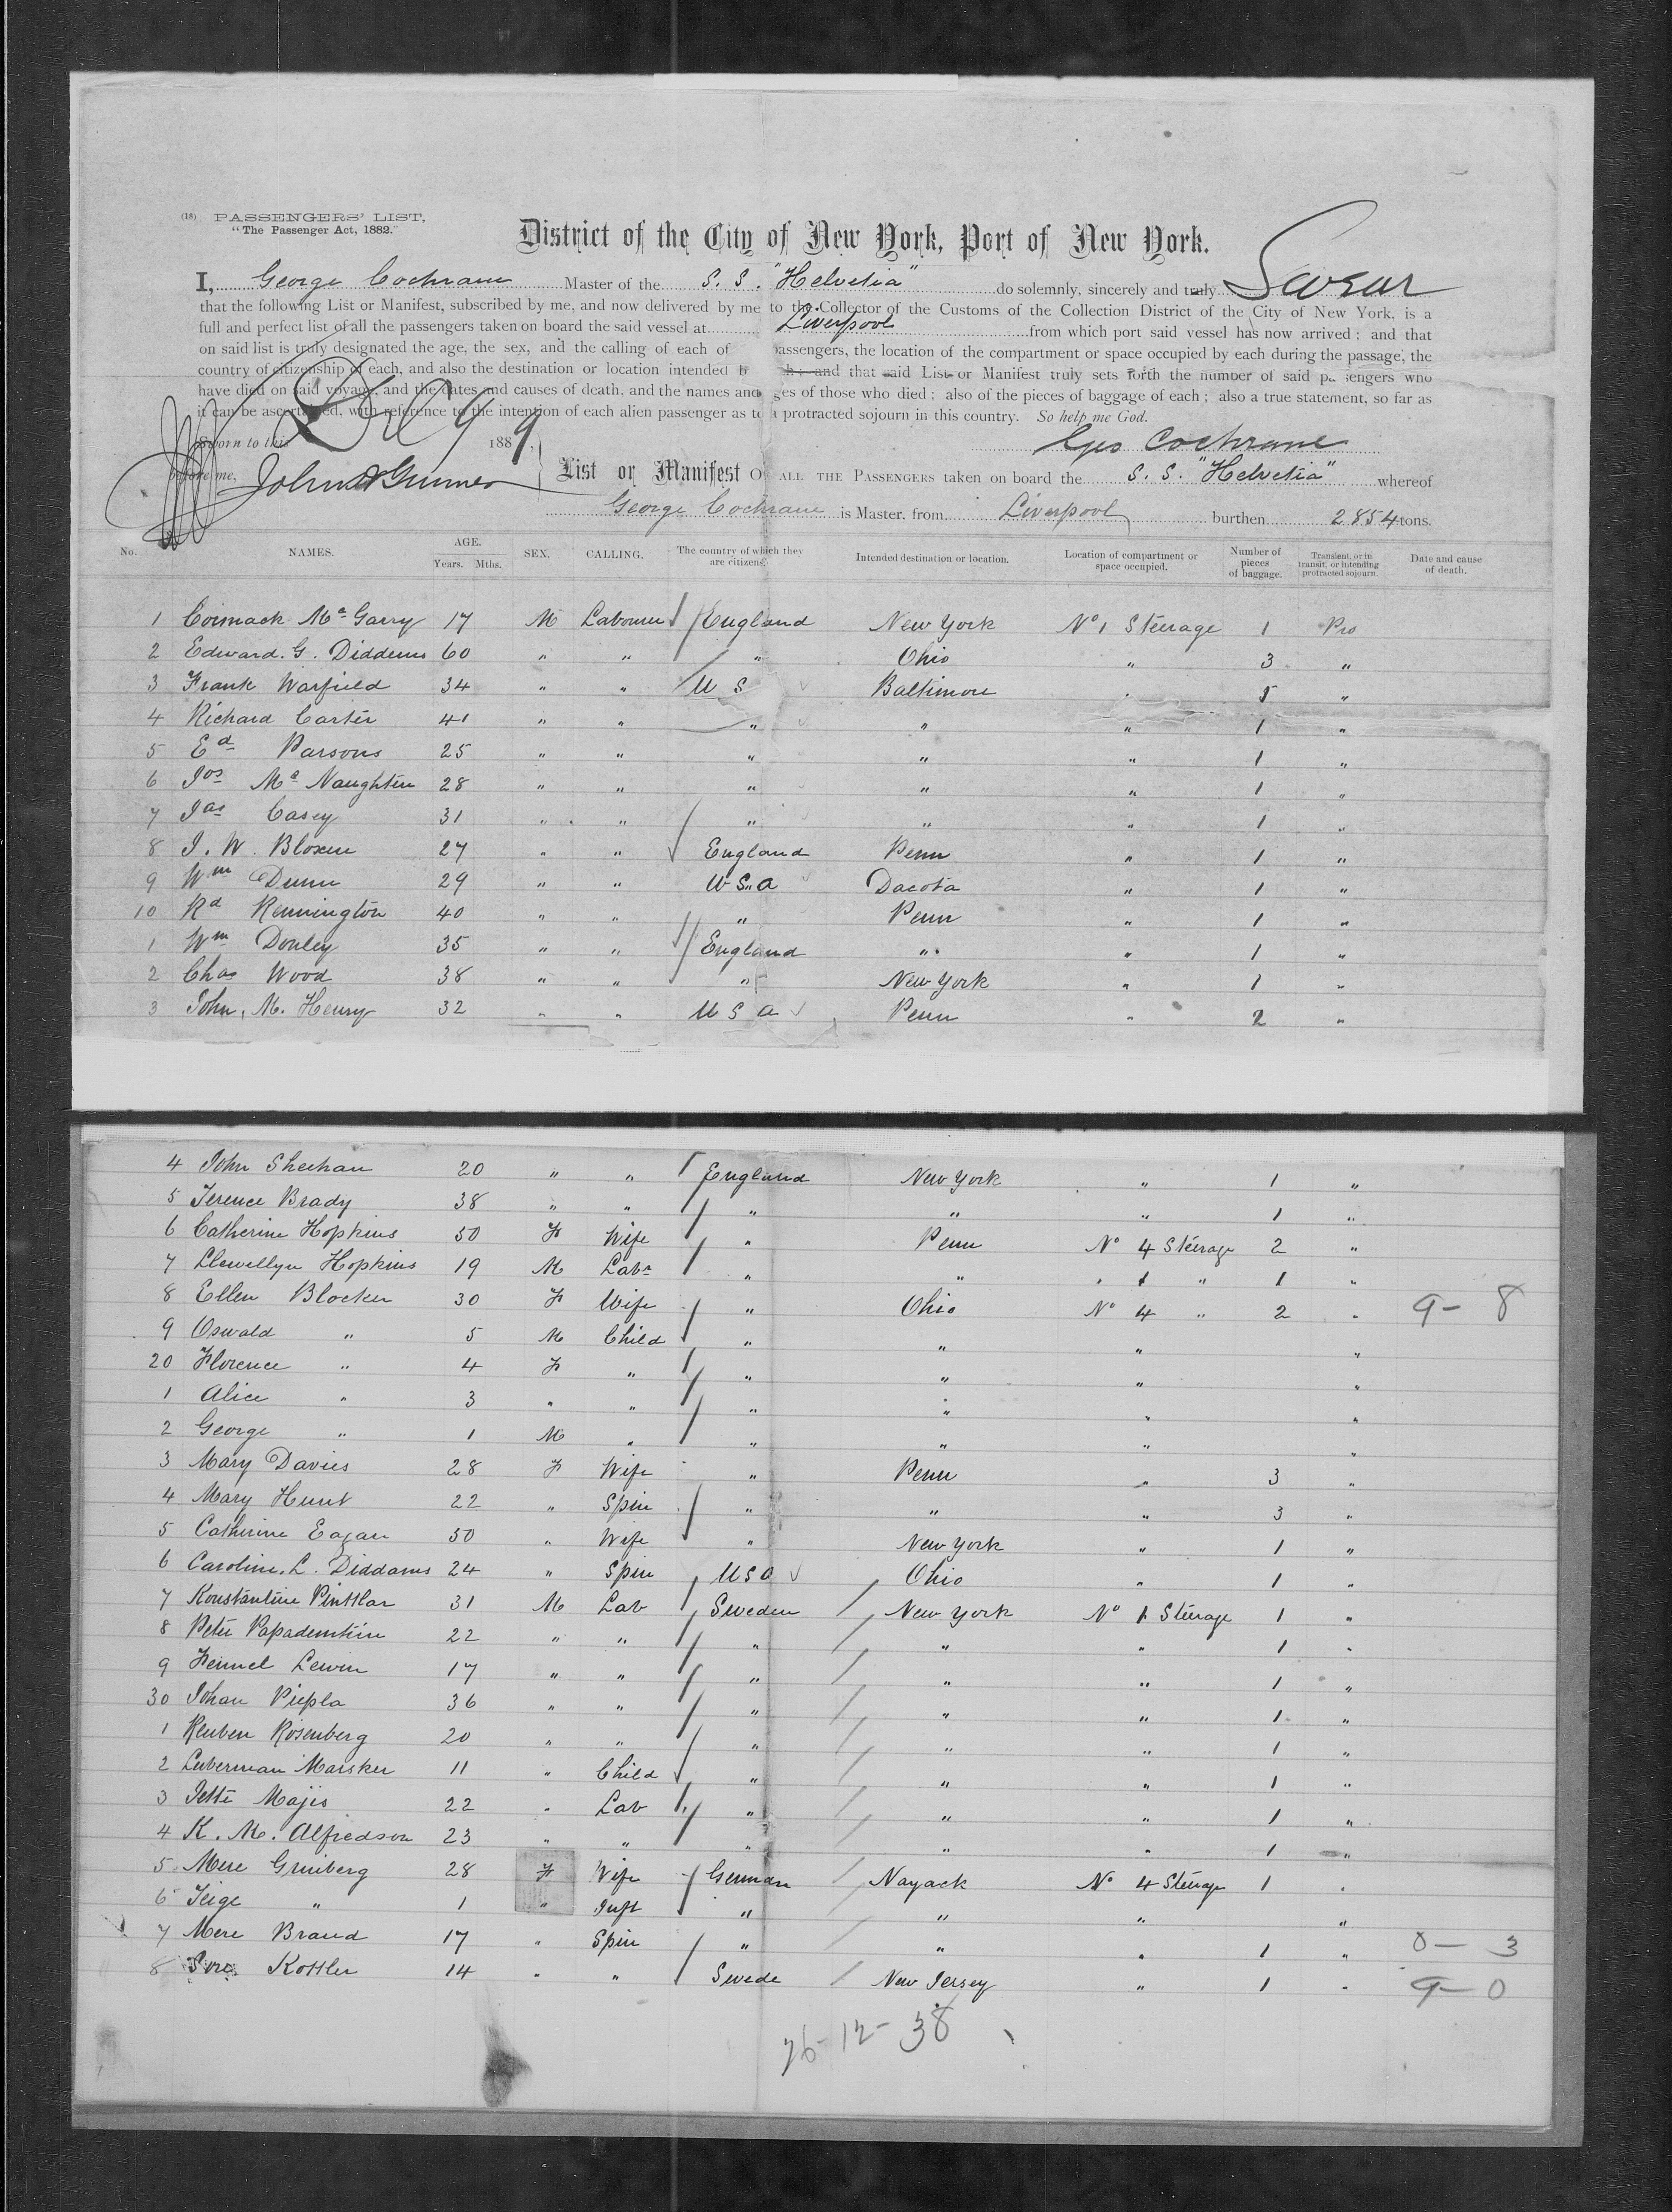 (18) PASSENGERS' LIST,
"The Passenger Act, 1882."
District of the City of New York, Port of New York.
I, George Cochrane Master of the S. S. "Helvetia" do solemnly, sincerely and truly Swear
that the following List or Manifest, subscribed by me, and now delivered by me to the Collector of the Customs of the Collection District of the City of New York, is a
full and perfect list of all the passengers taken on board the said vessel at Liverpool from which port said vessel has now arrived; and that
on said list is truly designated the age, the sex, and the calling of each of passengers, the location of the compartment or space occupied by each during the passage, the
country of citizenship of each, and also the destination or location intended b h; and that said List or Manifest truly sets forth the number of said pa sengers who
have died on said voyage, and the dates and causes of death, and the names and ges of those who died; also of the pieces of baggage of each; also a true statement, so far as
it can be ascertained, with reference to the intention of each alien passenger as to a protracted sojourn in this country. So help me God.
Sworn to this Dec 9 1889. Geo Cochrane
before me, John
List or Manifest OF ALL THE PASSENGERS taken on board the S. S. "Helvetia" whereof
George Cochrane is Master, from Liverpool burthen 2854 tons.
No. NAMES. AGE. Years. Mths. SEX. CALLING. The country of which they are citizens. Intended destination or location. Location of compartment or space occupied. Number of pieces of baggage. Transient, or in transit, or intending protracted sojourn. Date and cause of death.
1 Cormack McGarry 17 M Labourer England New York No 1 Steerage 1 Pro
2 Edward. G. Diddems 60 " " " Ohio " 3 "
3 Frank Warfield 34 " " U S Baltimore " "
4 Richard Carter 41 " " " " " 1 "
5 Ed Parsons 25 " " " " " 1 "
6 Jos McNaughten 28 " " " " " 1 "
7 Jas Casey 31 " " " " " 1 "
8 J. W. Bloxen 27 " " England Penn " 1 "
9 Wm Dunn 29 " " U S A Dacota " 1 "
10 Rd Rennington 40 " " " Penn " 1 "
1 Wm Donley 35 " " England " " 1 "
2 Chas Wood 38 " " " New York " 1 "
3 John. M. Henry 32 " " U S A Penn " 2 "
4 John Sheehan 20 " " England New York " 1 "
5 Terence Brady 38 " " " " " 1 "
6 Catherine Hopkins 50 F Wife " Penn No 4 Steerage 2 "
7 Llewellyn Hopkins 19 M Labr " " " 1 " 1 "
8 Ellen Blocker 30 F Wife " Ohio No 4 " 2 " 9 - 8
9 Oswald " 5 M Child " " " "
20 Florence " 4 F " " " " "
1 Alice " 3 " " " " " "
2 George " 1 M " " " " "
3 Mary Davies 28 F Wife " Penn " 3 "
4 Mary Hunt 22 " Spin " " " 3 "
5 Catherine Eagan 50 " Wife " New York " 1 "
6 Caroline. L. Diddams 24 " Spin U S A Ohio " 1 "
7 Konstantine Pinttlar 31 M Lab Sweden New York No 1 Steerage 1 "
8 Peter Papademtein 22 " " " " " 1 "
9 Femmel Lewin 17 " " " " " 1 "
30 Johan Piepla 36 " " " " " 1 "
1 Reuben Rosenberg 20 " " " " " 1 "
2 Luberman Marsker 11 " Child " " " 1 "
3 Jette Majis 22 " Lab " " " 1 "
4 K. M. Alfredson 23 " " " " " 1 "
5 Mere Grinberg 28 F Wife German Nayack No 4 Steerage 1 "
6 Feige " 1 " Inft " " " "
7 Mere Brand 17 " Spin " " " 1 " 0 - 3
8 Kottler 14 " " Swede New Jersey " 1 " 9 - 0
26 - 12 - 38